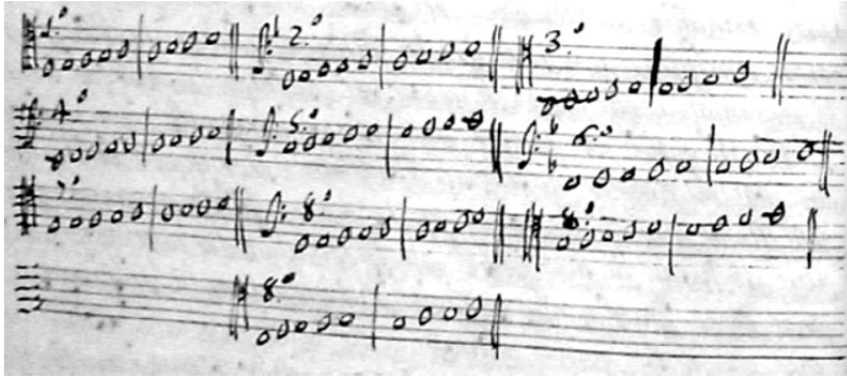 1.º 2.º 3.º
4.º 5.º 6.º
7.º 8.º 8.º
8.º